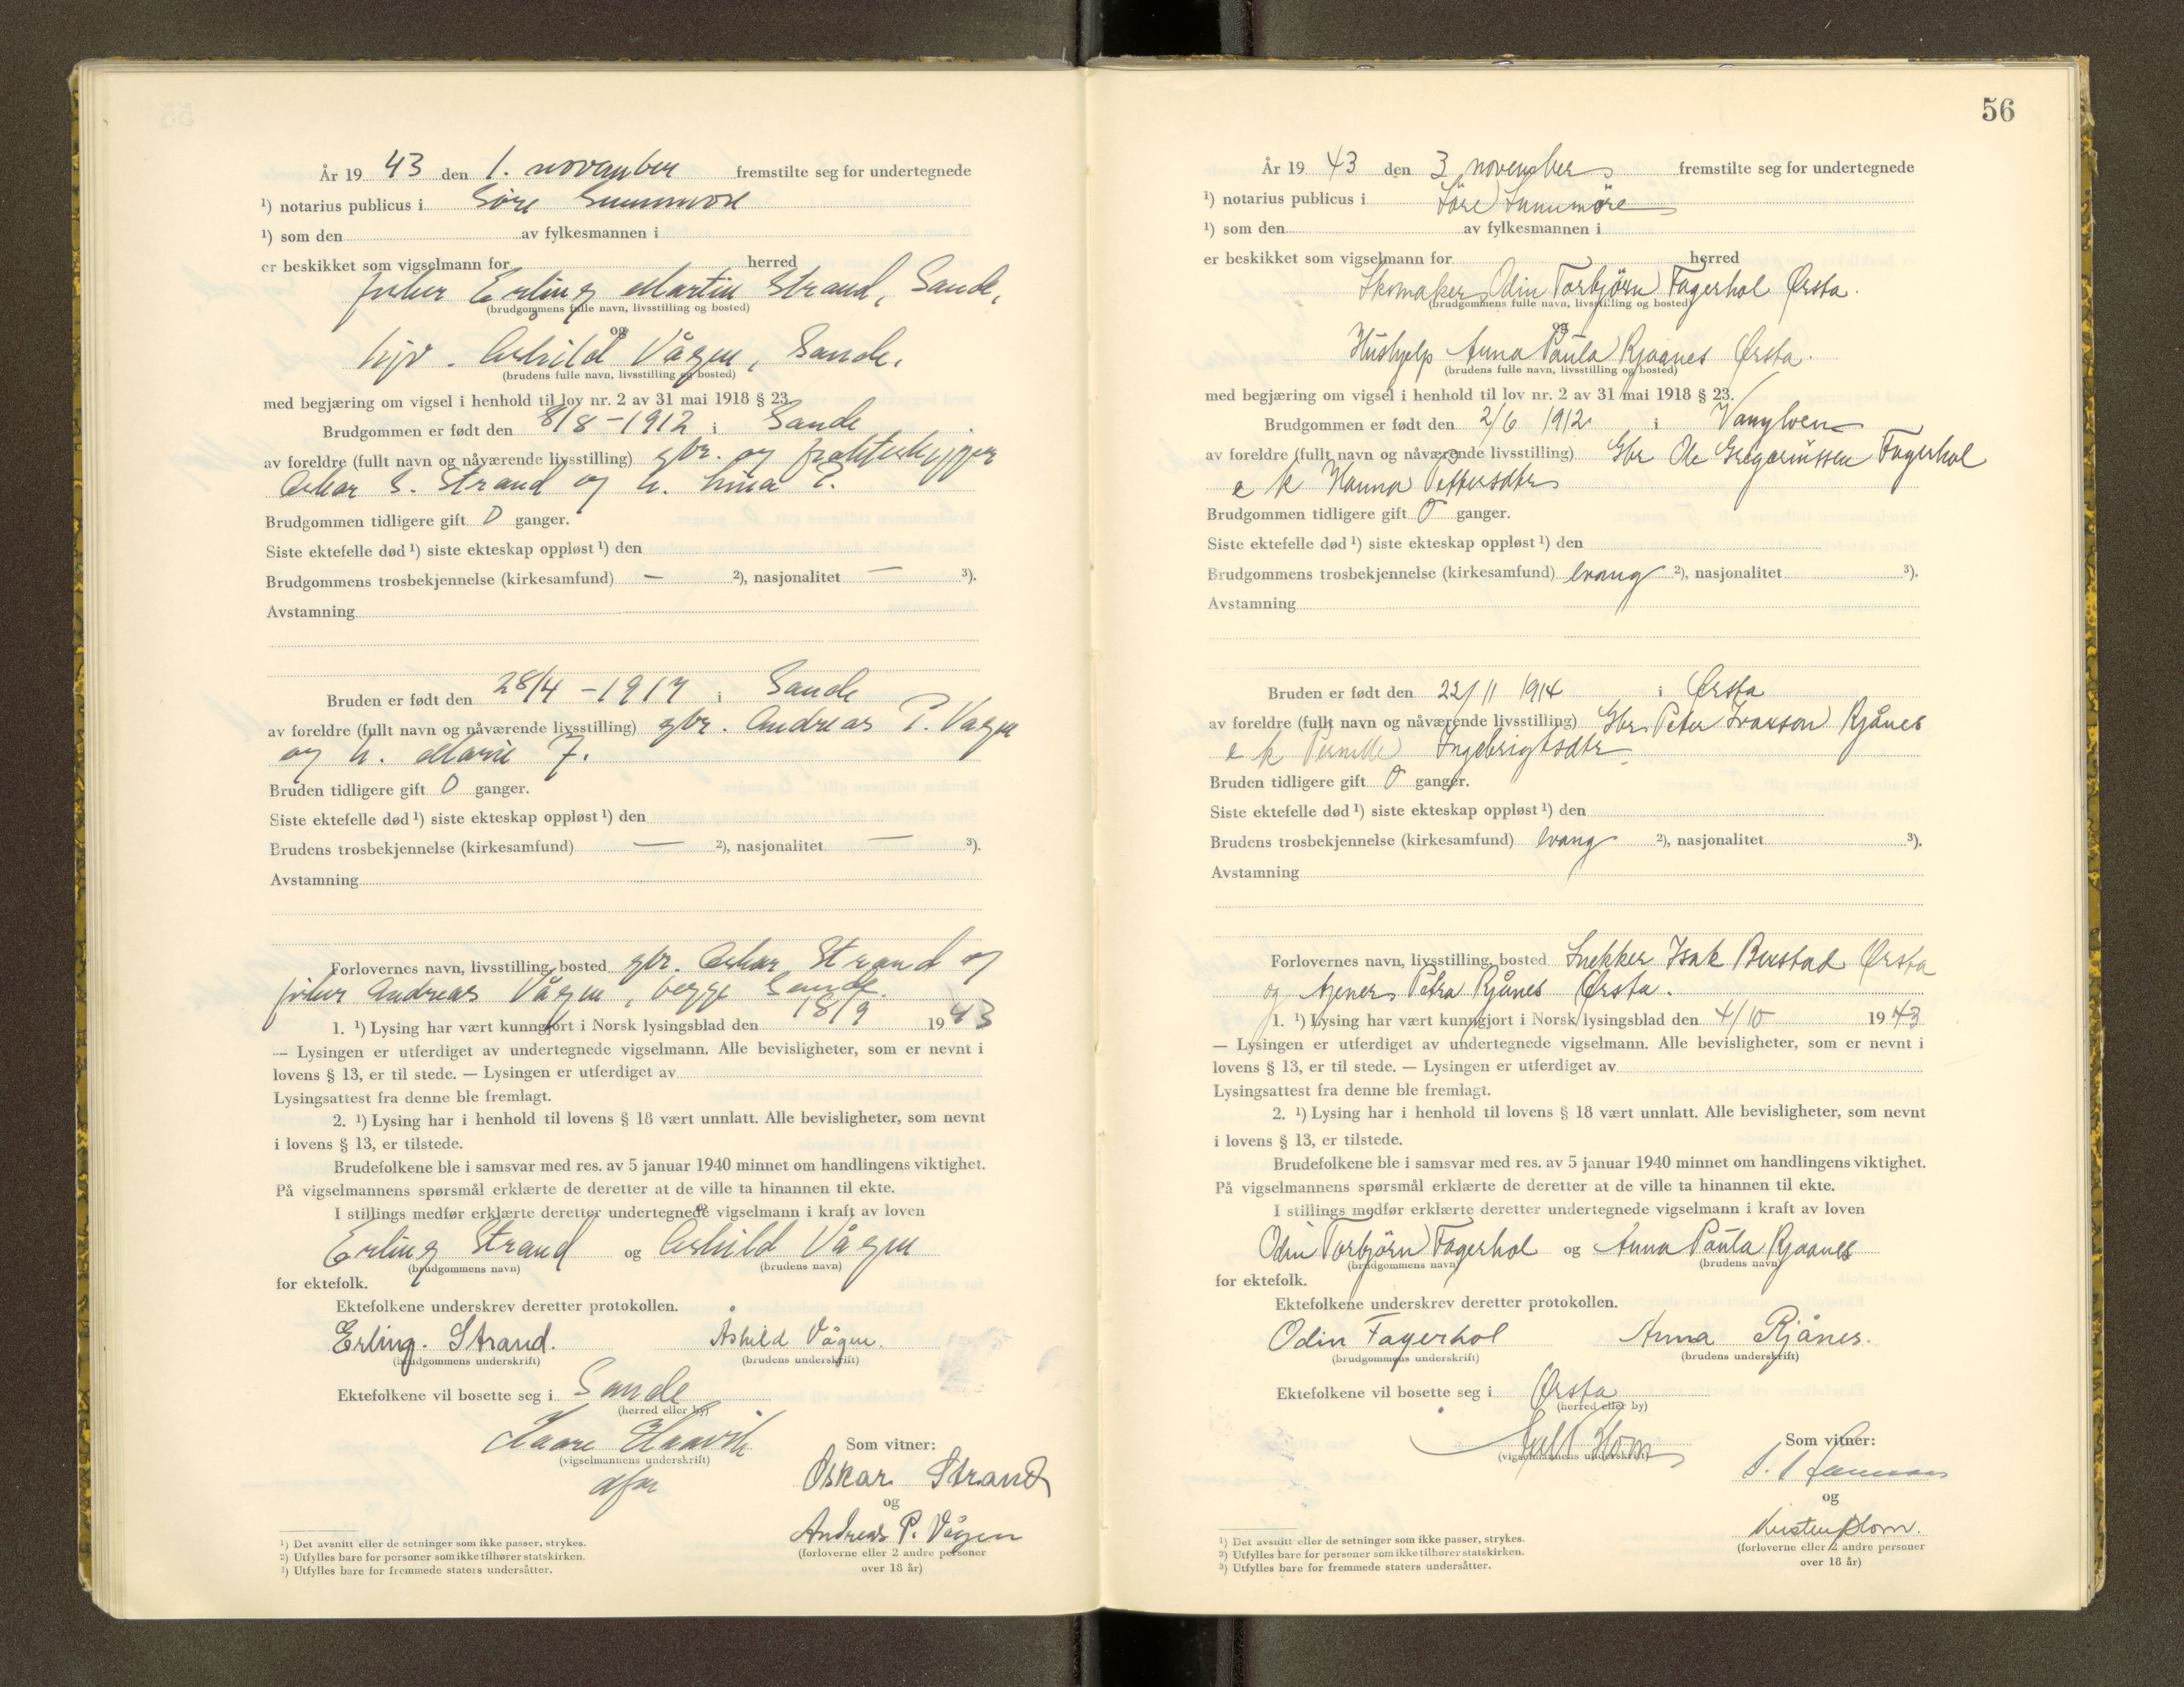 År 19 43 den 1. november fremstilte seg for undertegnede
¹) notarius publicus i Söre Sunnmöre
¹) som den av fylkesmannen i
er beskikket som vigselmann for herred
fisker Erling Martin Strand, Sande,
(brudgommens fulle navn, livsstilling og bosted)
og
hjv. Åshild Vågen, Sande,
(brudens fulle navn, livsstilling og bosted)
med begjæring om vigsel i henhold til lov nr. 2 av 31 mai 1918 § 23.
Brudgommen er født den 8/8-1912 i Sande
av foreldre (fullt navn og nåværende livsstilling) gbr. og frakteskipper
Oskar S. Strand og h. Lina
Brudgommen tidligere gift 0 ganger.
Siste ektefelle død ¹) siste ekteskap oppløst ¹) den
Brudgommens trosbekjennelse (kirkesamfund) — ²), nasjonalitet — ³).
Avstamning
Bruden er født den 28/4-1917 i Sande
av foreldre (fullt navn og nåværende livsstilling) gbr. Andreas P. Vågen
og h. Marie J.
Bruden tidligere gift 0 ganger.
Siste ektefelle død ¹) siste ekteskap oppløst ¹) den
Brudens trosbekjennelse (kirkesamfund) — ²), nasjonalitet — ³).
Avstamning
Forlovernes navn, livsstilling, bosted gbr. Oskar Strand og
fisker Andreas Vågen, begge Sande.
1. ¹) Lysing har vært kunngjort i Norsk lysingsblad den 18/9 19 43
— Lysingen er utferdiget av undertegnede vigselmann. Alle bevisligheter, som er nevnt i
lovens § 13, er til stede. — Lysingen er utferdiget av
Lysingsattest fra denne ble fremlagt.
2. ¹) Lysing har i henhold til lovens § 18 vært unnlatt. Alle bevisligheter, som nevnt
i lovens § 13, er tilstede.
Brudefolkene ble i samsvar med res. av 5 januar 1940 minnet om handlingens viktighet.
På vigselmannens spørsmål erklærte de deretter at de ville ta hinannen til ekte.
I stillings medfør erklærte deretter undertegnede vigselmann i kraft av loven
Erling Strand og Åshild Vågen
(brudgommens navn) (brudens navn)
for ektefolk.
Ektefolkene underskrev deretter protokollen.
Erling. Strand. Åshild Vågen.
(brudgommens underskrift) (brudens underskrift)
Ektefolkene vil bosette seg i Sande
(herred eller by)
Kaare Haavik
(vigselmannens underskrift)
Som vitner:
Oskar Strand
og
Andreas P. Vågen
(forloverne eller 2 andre personer
over 18 år)
¹) Det avsnitt eller de setninger som ikke passer, strykes.
²) Utfylles bare for personer som ikke tilhører statskirken.
³) Utfylles bare for fremmede staters undersåtter.
56
År 19 43 den 3 november fremstilte seg for undertegnede
¹) notarius publicus i Söre Sunnmöre
¹) som den av fylkesmannen i
er beskikket som vigselmann for herred
Skomaker Odin Torbjörn Fagerhol Ørsta.
(brudgommens fulle navn, livsstilling og bosted)
og
Hushjelp Anna Paula Rjaanes Ørsta.
(brudens fulle navn, livsstilling og bosted)
med begjæring om vigsel i henhold til lov nr. 2 av 31 mai 1918 § 23.
Brudgommen er født den 2/6 1912 i Vanylven
av foreldre (fullt navn og nåværende livsstilling) Gbr Ole Gregoriussen Fagerhol
e k Hanna Pettersdtr
Brudgommen tidligere gift 0 ganger.
Siste ektefelle død ¹) siste ekteskap oppløst ¹) den
Brudgommens trosbekjennelse (kirkesamfund) evang ²), nasjonalitet ³).
Avstamning
Bruden er født den 22/11 1914 i Ørsta
av foreldre (fullt navn og nåværende livsstilling) Gbr. Peter Ivarson Rjånes
e k Pernille Ingebrigtsdtr
Bruden tidligere gift 0 ganger.
Siste ektefelle død ¹) siste ekteskap oppløst ¹) den
Brudens trosbekjennelse (kirkesamfund) evang ²), nasjonalitet ³).
Avstamning
Forlovernes navn, livsstilling, bosted Snekker Isak Buestad Ørsta
og Petra Rjånes Ørsta.
1. ¹) Lysing har vært kunngjort i Norsk lysingsblad den 4/10 19 43
— Lysingen er utferdiget av undertegnede vigselmann. Alle bevisligheter, som er nevnt i
lovens § 13, er til stede. — Lysingen er utferdiget av
Lysingsattest fra denne ble fremlagt.
2. ¹) Lysing har i henhold til lovens § 18 vært unnlatt. Alle bevisligheter, som nevnt
i lovens § 13, er tilstede.
Brudefolkene ble i samsvar med res. av 5 januar 1940 minnet om handlingens viktighet.
På vigselmannens spørsmål erklærte de deretter at de ville ta hinannen til ekte.
I stillings medfør erklærte deretter undertegnede vigselmann i kraft av loven
Odin Torbjörn Fagerhol og Anna Paula Rjaanes
(brudgommens navn) (brudens navn)
for ektefolk.
Ektefolkene underskrev deretter protokollen.
Odin Fagerhol Anna Rjånes.
(brudgommens underskrift) (brudens underskrift)
Ektefolkene vil bosette seg i Ørsta
(herred eller by)
(vigselmannens underskrift)
Som vitner:
og
Kirsten Blom.
(forloverne eller 2 andre personer
over 18 år)
¹) Det avsnitt eller de setninger som ikke passer, strykes.
²) Utfylles bare for personer som ikke tilhører statskirken.
³) Utfylles bare for fremmede staters undersåtter.